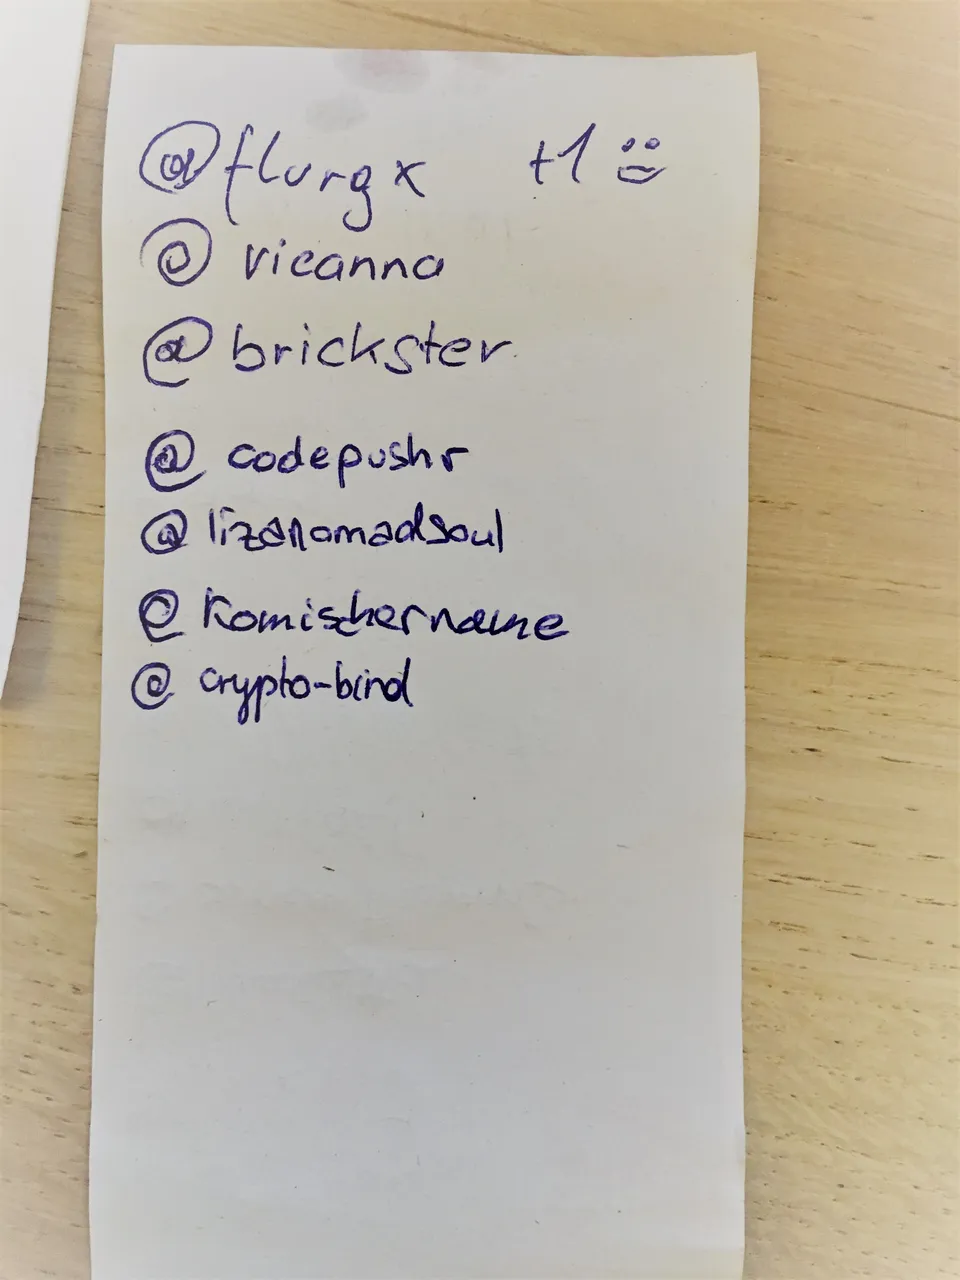 @flurgx +1 :)
@ vieanna
@ brickster
@ codepushr
@ lizanomadsoul
@ komischername
@ crypto-bind